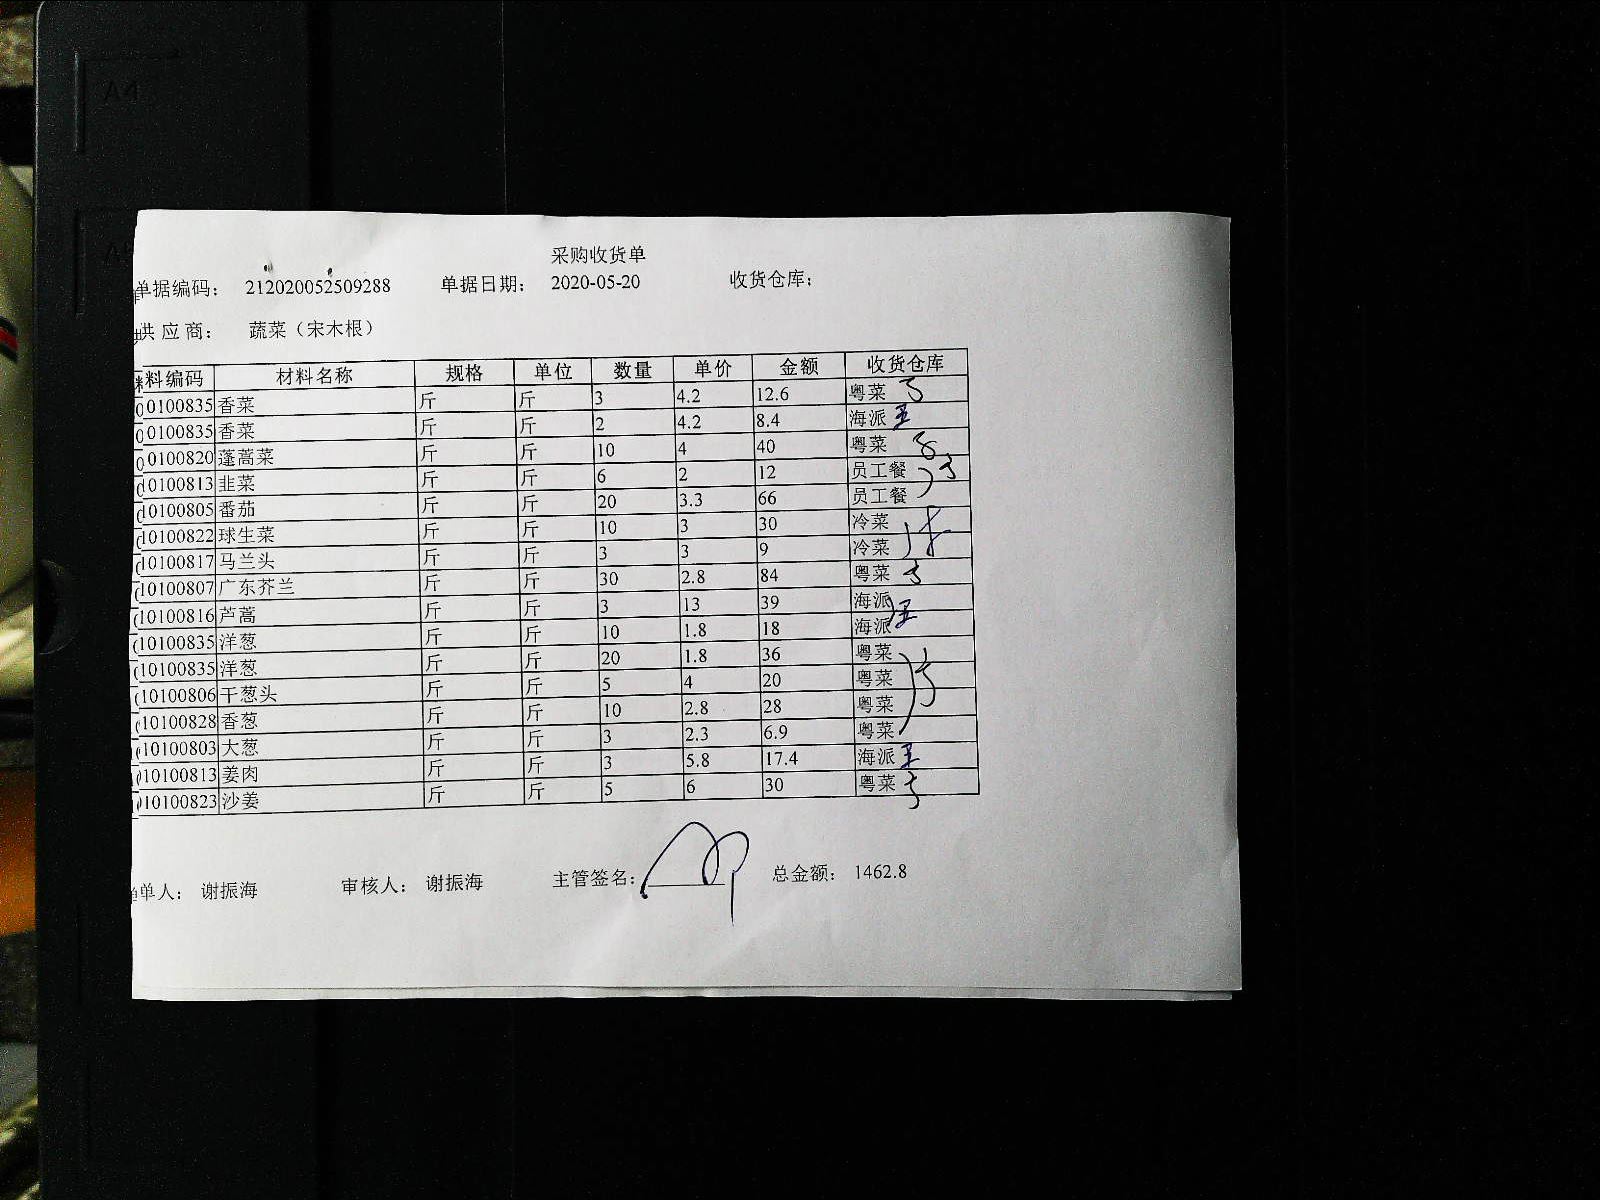 采购收货单
单据编码： 212020052509288 单据日期： 2020-05-20 收货仓库：
供应商： 蔬菜（宋木根）
料编码 材料名称 规格 单位 数量 单价 金额 收货仓库
0100835 香菜 斤 斤 3 4.2 12.6 粤菜
0100835 香菜 斤 斤 2 4.2 8.4 海派 王
0100820 蓬蒿菜 斤 斤 10 4 40 粤菜
10100813 韭菜 斤 斤 6 2 12 员工餐
10100805 番茄 斤 斤 20 3.3 66 员工餐
10100822 球生菜 斤 斤 10 3 30 冷菜
10100817 马兰头 斤 斤 3 3 9 冷菜
10100807 广东芥兰 斤 斤 30 2.8 84 粤菜
10100816 芦蒿 斤 斤 3 13 39 海派
10100835 洋葱 斤 斤 10 1.8 18 海派 王
10100835 洋葱 斤 斤 20 1.8 36 粤菜
10100806 干葱头 斤 斤 5 4 20 粤菜
10100828 香葱 斤 斤 10 2.8 28 粤菜
10100803 大葱 斤 斤 3 2.3 6.9 粤菜
10100813 姜肉 斤 斤 3 5.8 17.4 海派 王
10100823 沙姜 斤 斤 5 6 30 粤菜
单人： 谢振海 审核人： 谢振海 主管签名： 总金额： 1462.8
A4